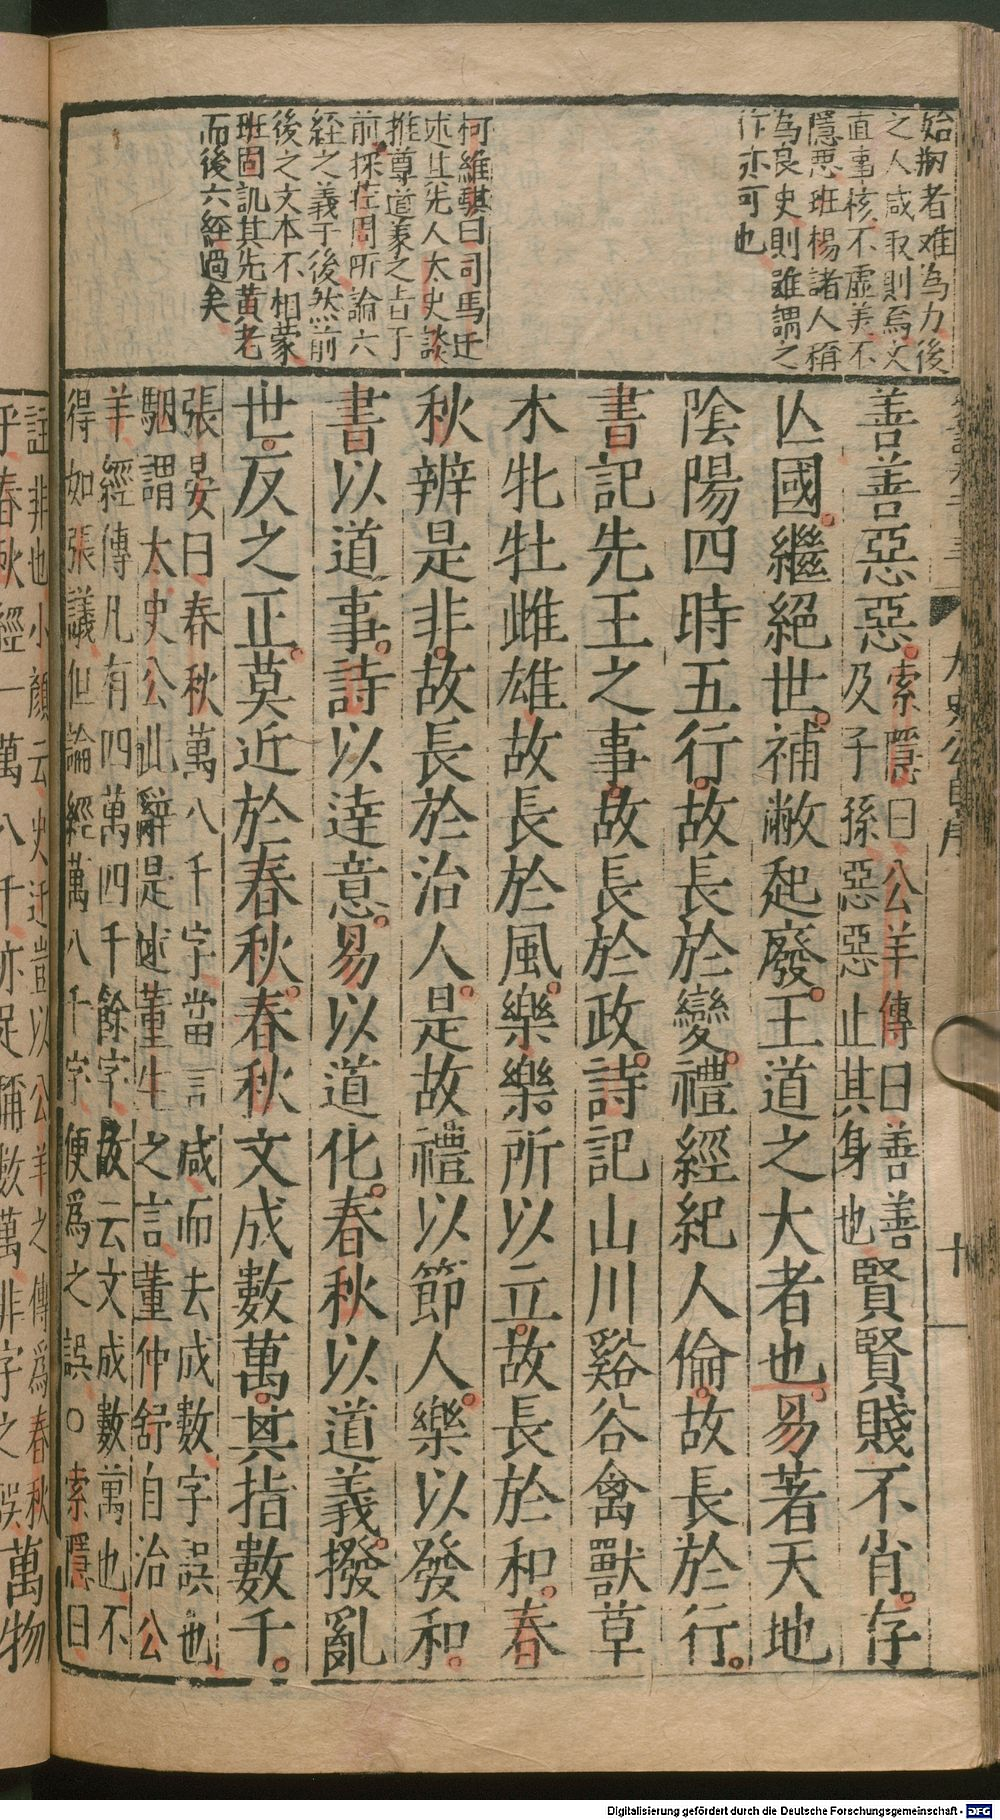 始刱者难為力後
之人咸取則焉文
直事核不虛美不
隱惡班楊諸人稱
為良史則雖謂之
作亦可也
柯維騏曰司馬迁
述其先人太史談
推尊道家之旨于
前採莊周所論六
經之義于後然前
後之文本不相蒙
班固訊其先黄老
而後六經過矣
太史公自序
十
善善惡惡索隱曰公羊傳曰善善
及子孫惡惡止其身也賢賢賤不肖存
亾國繼絕世補敝起廢王道之大者也易著天地
陰陽四時五行故長於變禮經紀人倫故長於行
書記先王之事故長於政詩記山川谿谷禽獸草
木牝牡雌雄故長於風樂樂所以立故長於和春
秋辨是非故長於治人是故禮以節人樂以發和
書以道事詩以達意易以道化春秋以道義撥亂
世反之正莫近於春秋春秋文成數萬其指數千
張晏曰春秋萬八千字當言咸而去成數字誤也
駰謂太史公此辭是述董生之言董仲舒自治公
羊經傳凡有四萬四千餘字故云文成數萬也不
得如張議但論經萬八千字便爲之誤○索隱曰
註非也小顏云史迁豈以公羊之傳爲春秋
乎春秋經一萬八千亦足稱數萬非字之誤萬物
Digitalisierung gefördert durch die Deutsche Forschungsgemeinschaft - DFG